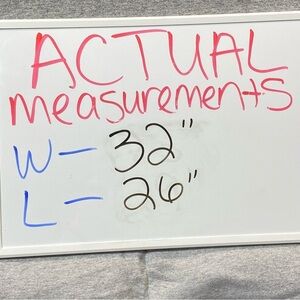 ACTUAL
measurements
W - 32"
L - 26"